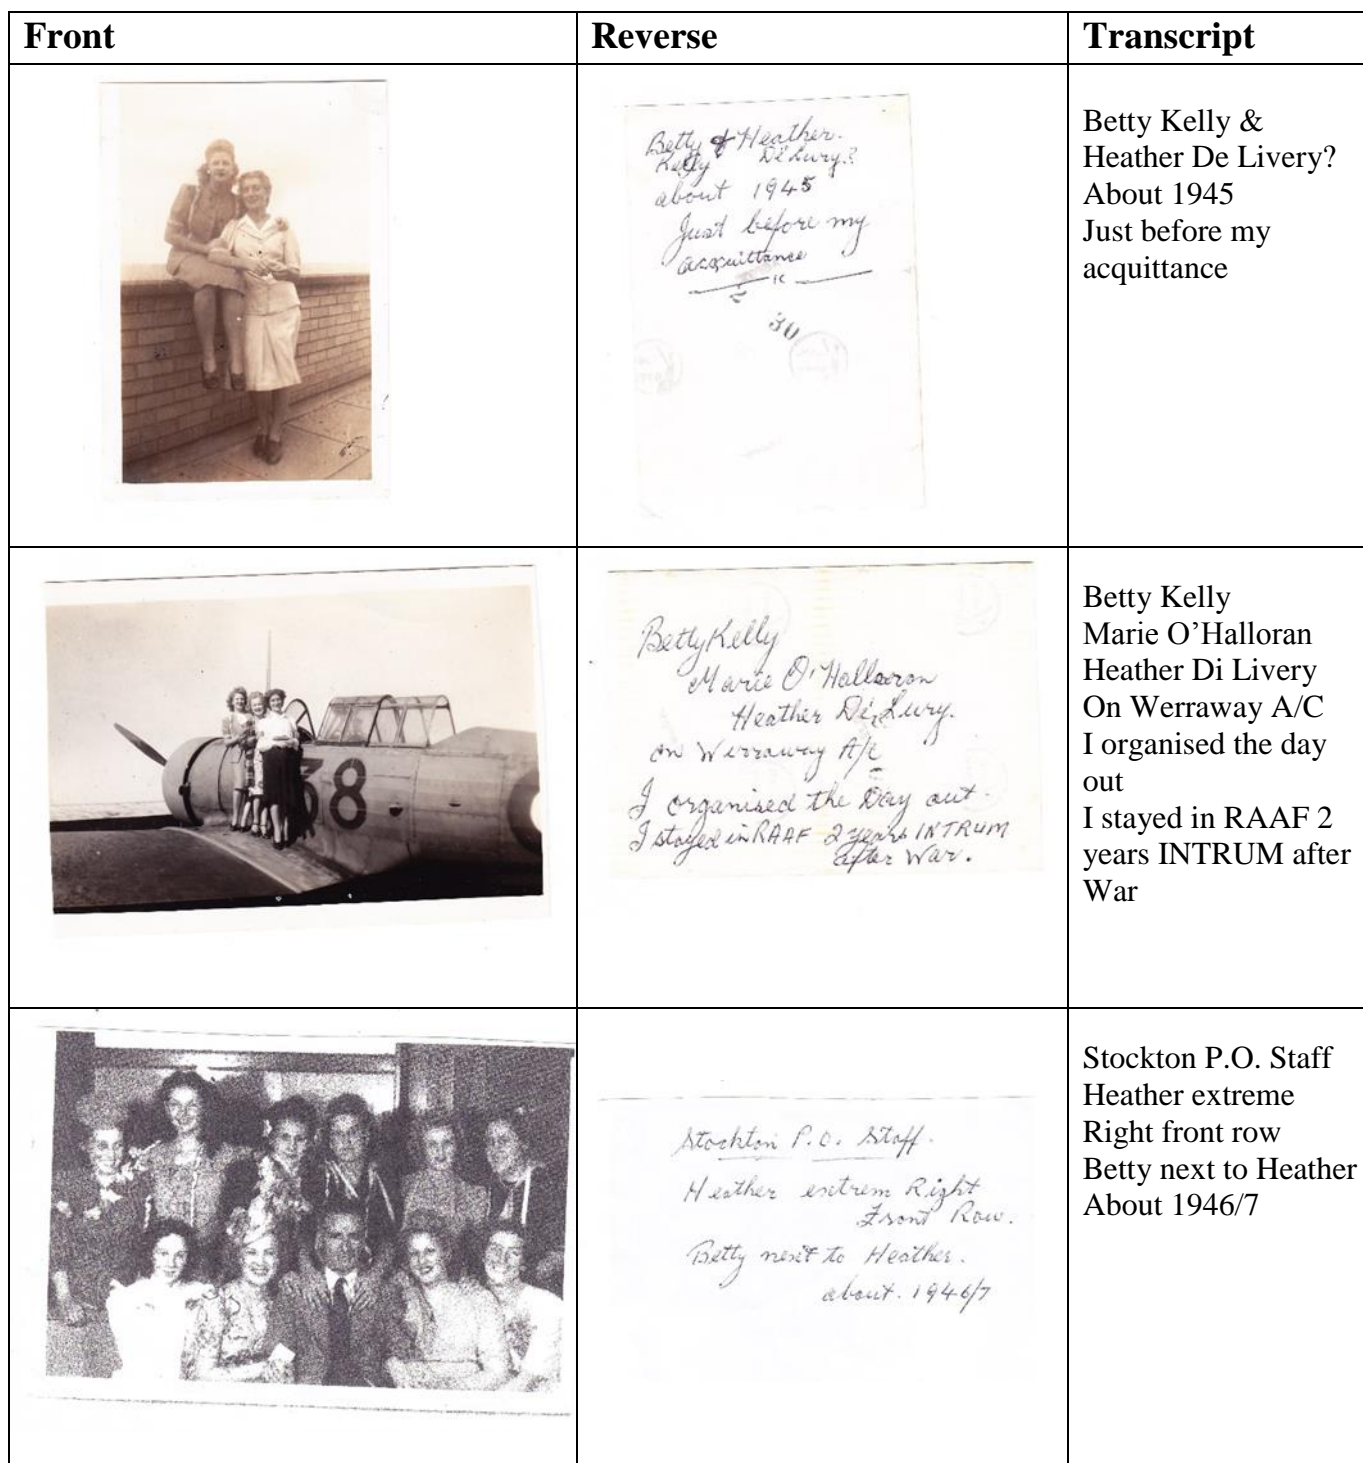 Front
Reverse
Transcript
Betty & Heather.
Kelly De Lury?
about 1945
Just before my
acquittance
30
Betty Kelly &
Heather De Livery?
About 1945
Just before my
acquittance
38
Betty Kelly
Marie O'Halloran
Heather De Lury.
on Werraway A/C
I organised the Day out.
I stayed in RAAF 2 years INTRUM
after War.
Betty Kelly
Marie O’Halloran
Heather Di Livery
On Werraway A/C
I organised the day
out
I stayed in RAAF 2
years INTRUM after
War
Stockton P.O. Staff.
Heather extrem Right
Front Row.
Betty next to Heather.
about. 1946/7
Stockton P.O. Staff
Heather extreme
Right front row
Betty next to Heather
About 1946/7